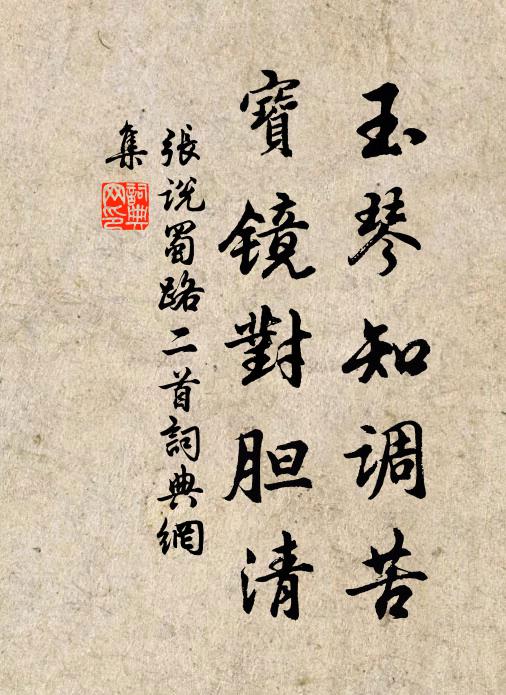 玉琴知调苦
寶镜對胆清
張説蜀路二首詞典網
集
詞典
网印